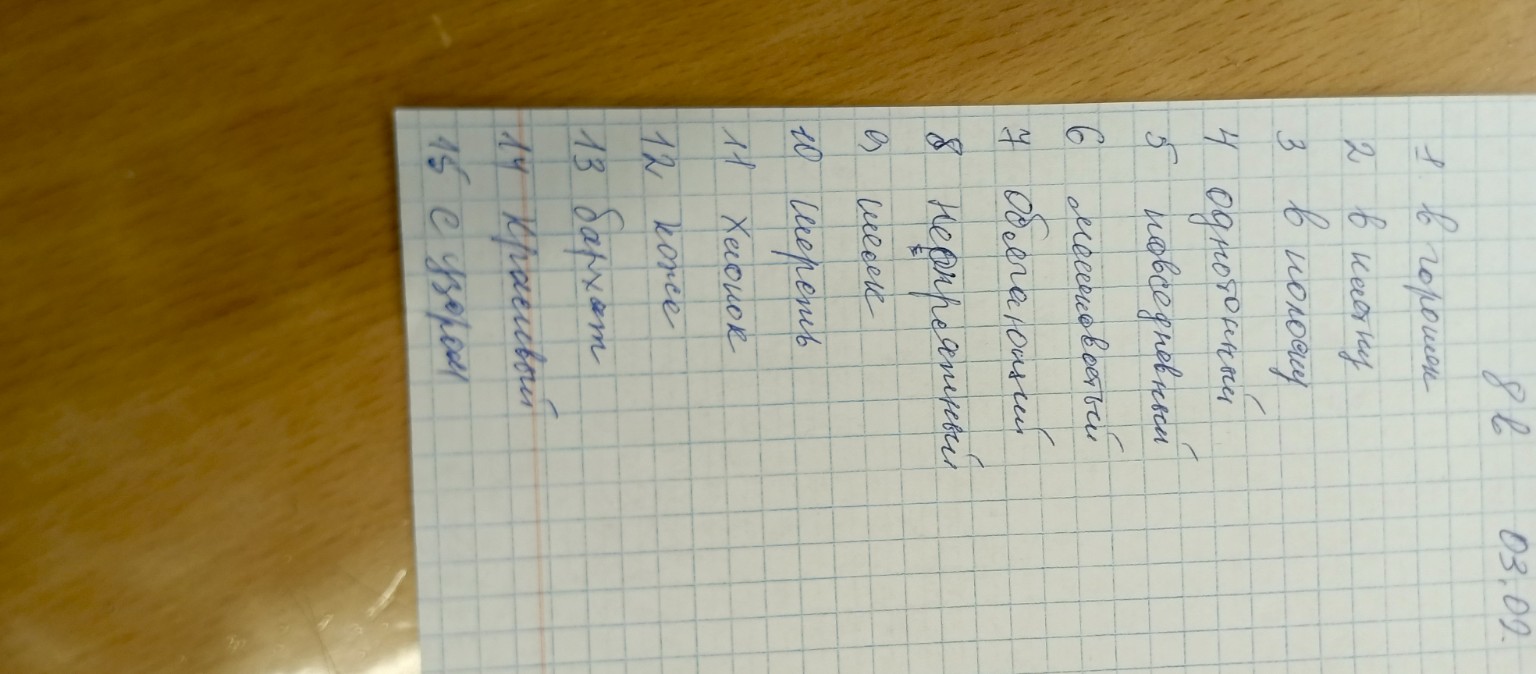 8 в 03.09.
1 в горошек
2 в клетку
3 в полоску
4 однотонный
5 повседневный
6 мешковатый
7 Облегающий
8 Неопрятный
9 шелк
10 Шерсть
11 Хлопок
12 кожа
13 бархат
14 Красивый
15 с узором